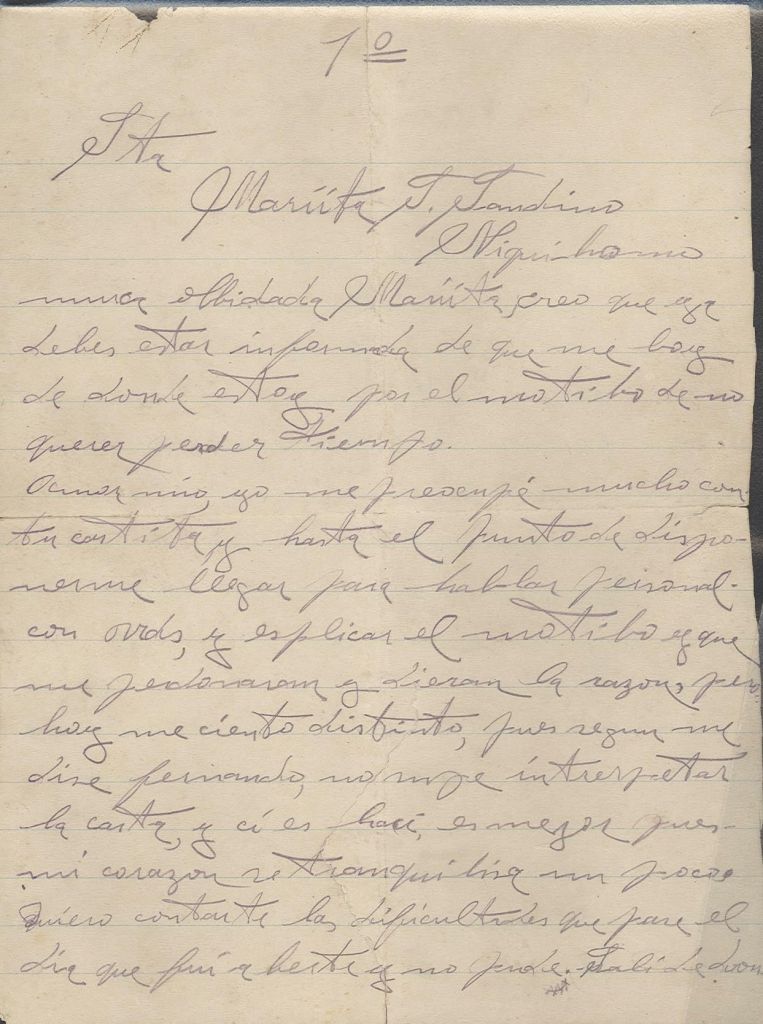 1º
Sta
Mariíta S. Sandino
Niquihomo
nunca olbidada Mariíta, creo que ya
debes estar informada de que me boy
de donde estoy por el motibo de no
querer perder Tiempo.
Amor mio, yo me preocupé mucho con
tu cartita, y hasta el punto de dispo-
nerme llegar para hablar personal-
con uds, y esplicar el motibo y que
me perdonaram y dieran la razon, pero
hoy me ciento distinto, pues segun me
dise fernando, no supe interpetar
la carta, y ci es haci, es mejor pues-
mi corazon se tranquilisa un poco.
Quiero contarte las dificultades que pase el
dia que fuí a berte y no pude. Sali de don